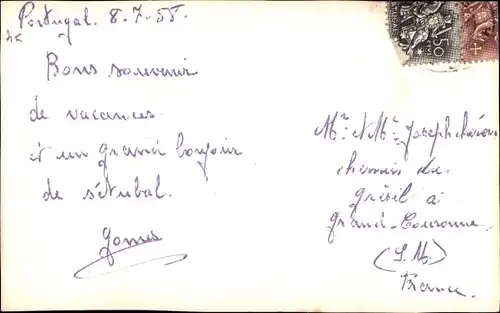 Portugal. 8.7.55.
50
Bons souvenir
de vacances
et un grand bonjour
de Sétubal.
Gomes
Mr et Mme Joseph
chemin du
Grésil à
Grand-Couronne
(S.M.)
France.